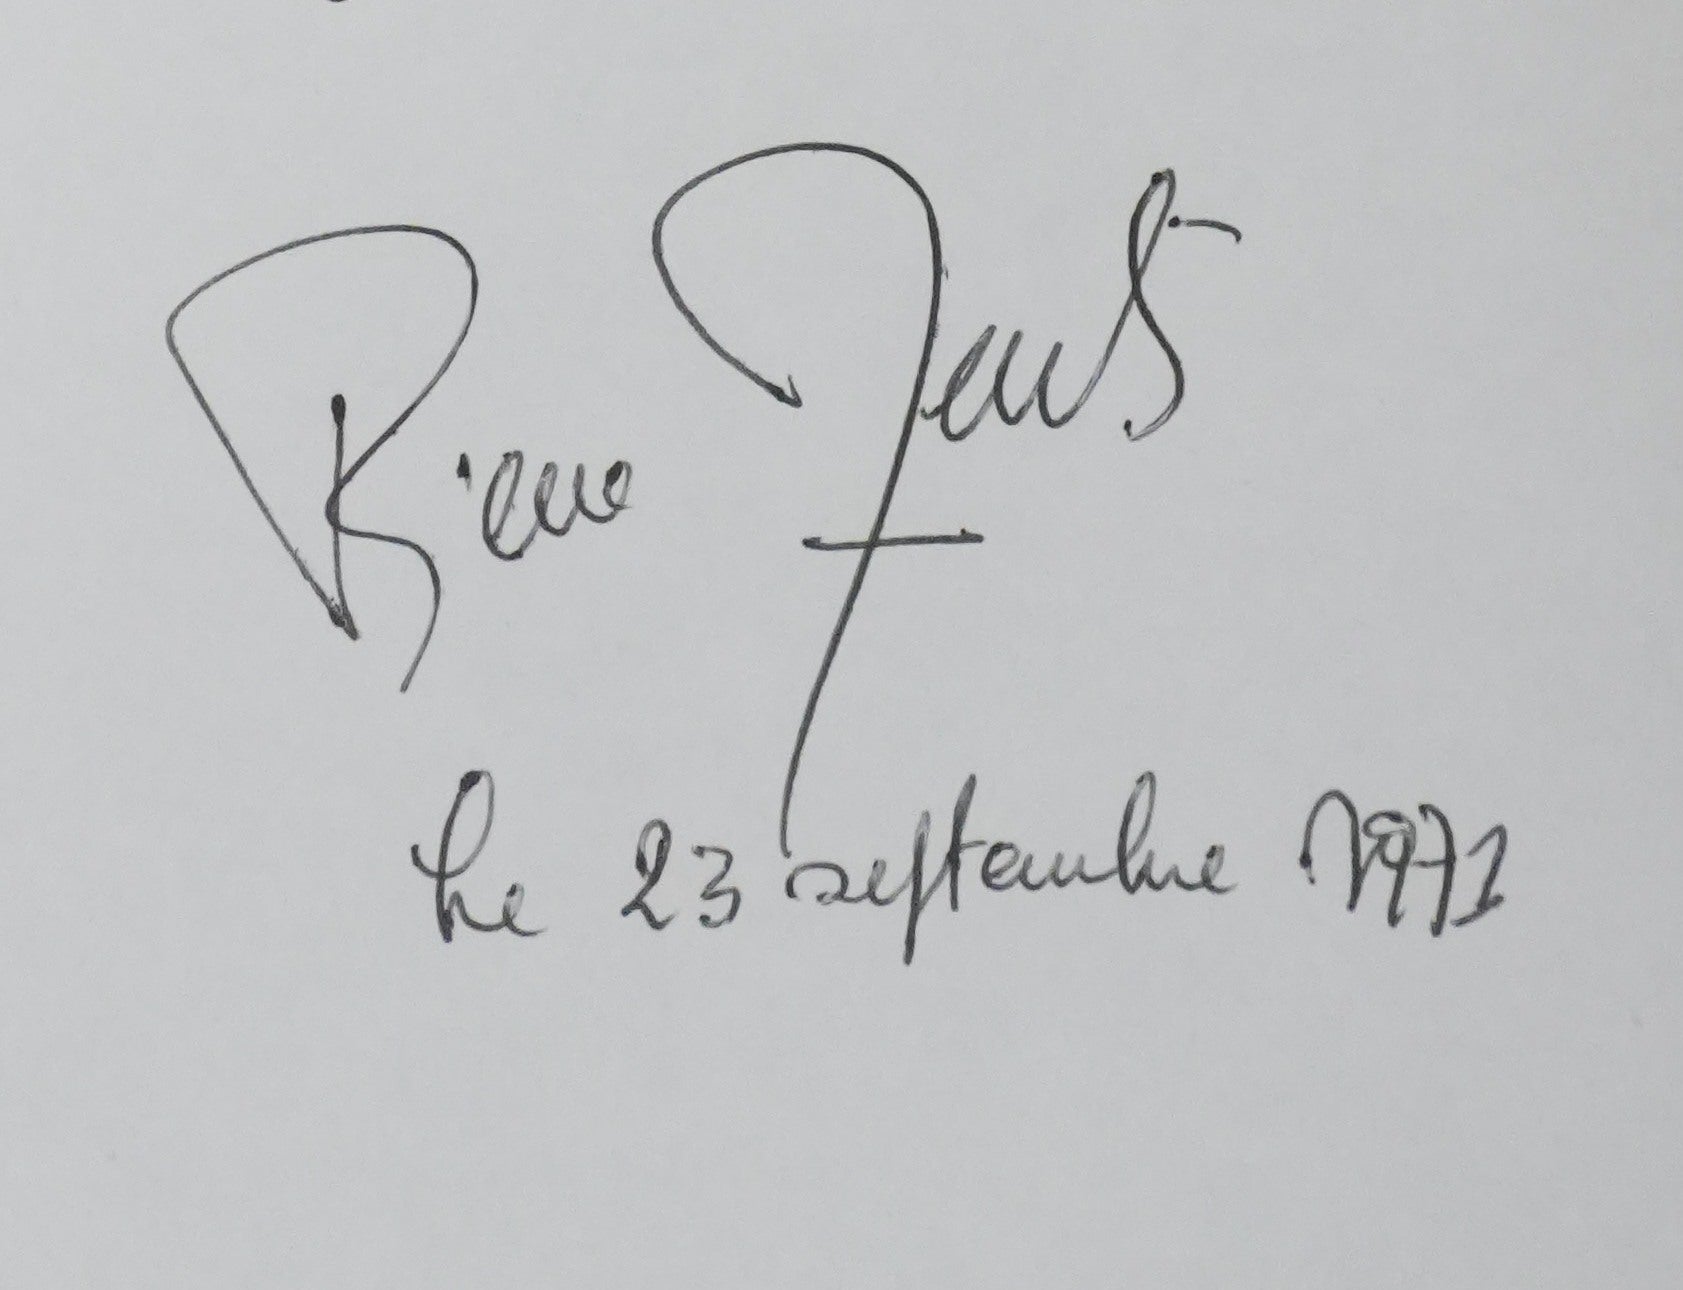 Pierre
Le 23 septembre 1971